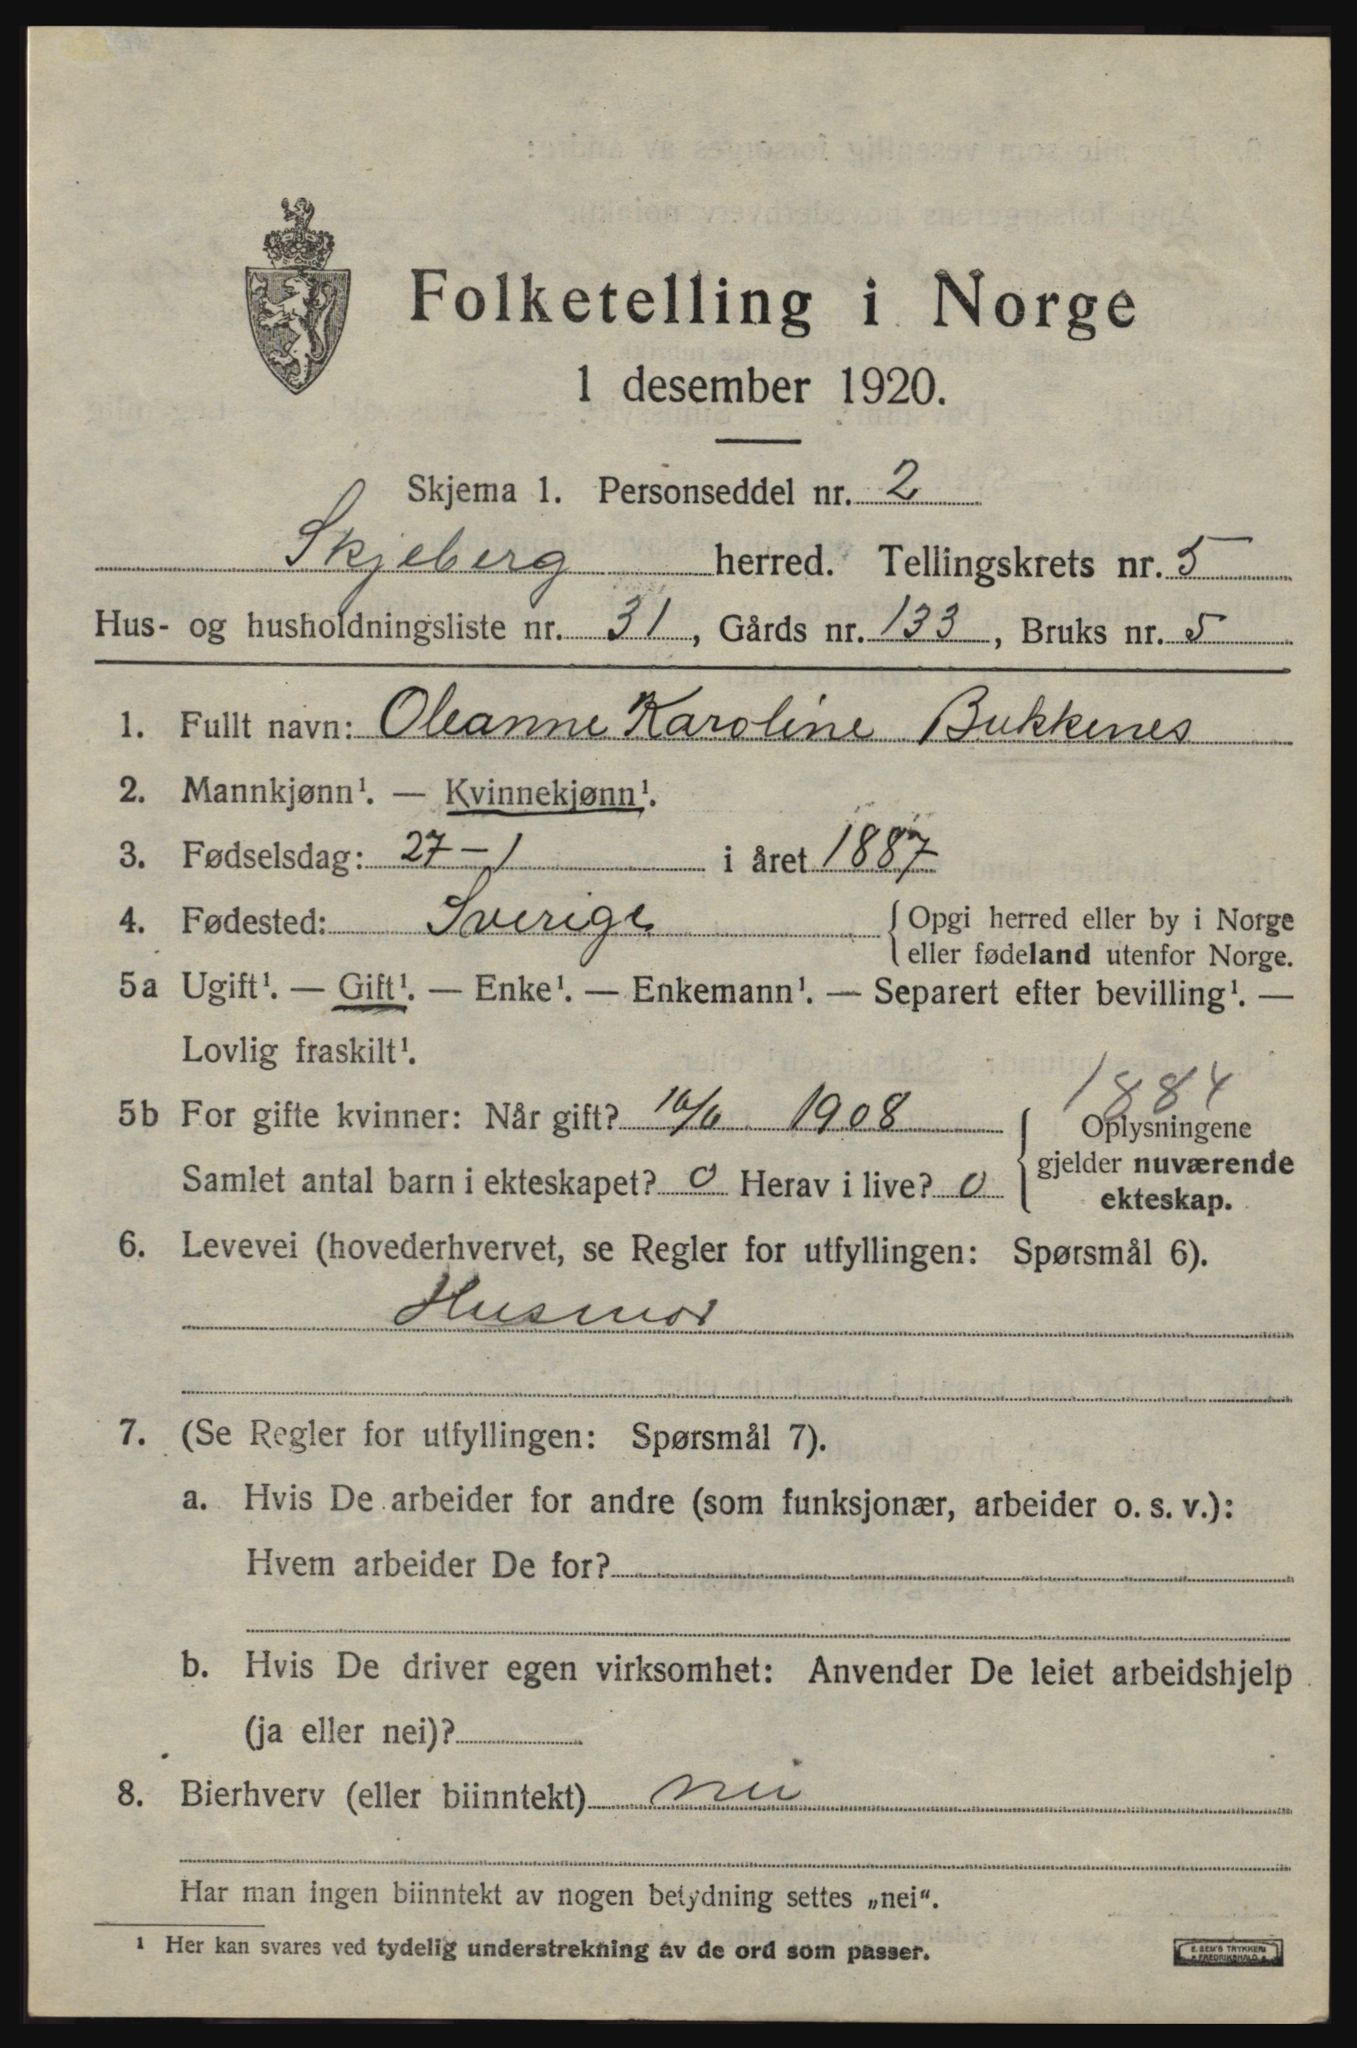 Folketelling i Norge
1 desember 1920.
Skjema 1. Personseddel nr. 2
Skjeberg herred. Tellingskrets nr. 5
Hus- og husholdningsliste nr. 31, Gårds nr. 133, Bruks nr. 5
1. Fullt navn: Oleanne Karoline Bukkenes
2. Mannkjønn¹. — Kvinnekjønn¹.
3. Fødselsdag: 27-1 i året 1887
4. Fødested: Sverige { Opgi herred eller by i Norge
eller fødeland utenfor Norge.
5a Ugift¹. — Gift¹. — Enke¹. — Enkemann¹. — Separert efter bevilling¹. —
Lovlig fraskilt¹.
1884
5b For gifte kvinner: Når gift? 1908 { Oplysningene
gjelder nuværende
Samlet antal barn i ekteskapet? 0 Herav i live? 0
ekteskap.
6. Levevei (hovederhvervet, se Regler for utfyllingen: Spørsmål 6).
Husmor
7. (Se Regler for utfyllingen: Spørsmål 7).
a. Hvis De arbeider for andre (som funksjonær, arbeider o. s. v.):
Hvem arbeider De for?
b. Hvis De driver egen virksomhet: Anvender De leiet arbeidshjelp
(ja eller nei)?
8. Bierhverv (eller biinntekt) nei
Har man ingen biinntekt av nogen betydning settes „nei“.
¹ Her kan svares ved tydelig understrekning av de ord som passer.
E. SEM'S TRYKKERI
FREDRIKSHALD